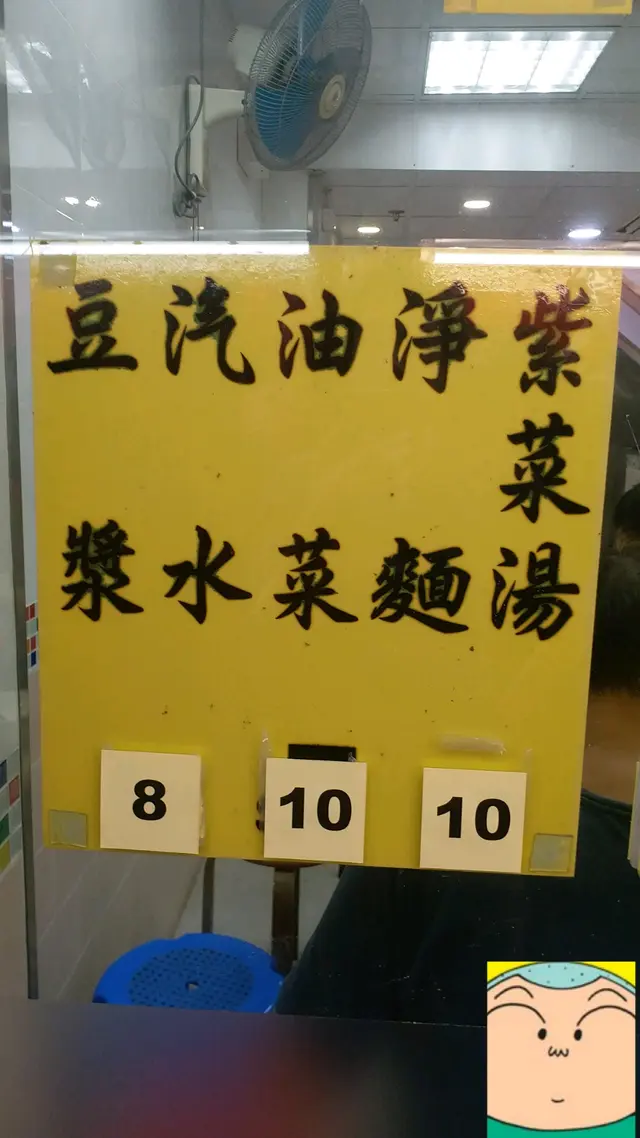 紫菜湯
淨麵
油菜
汽水
豆漿
10
10
8